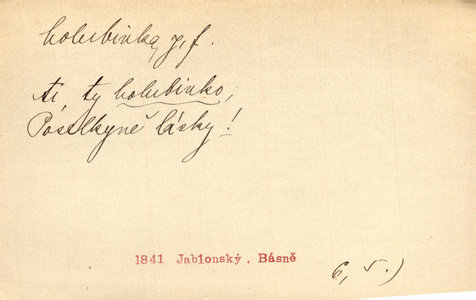 holubinka, f.
Ai, ty holubinko,
Poselkyně lásky!
1841 Jablonský, Básně
6, 5.)